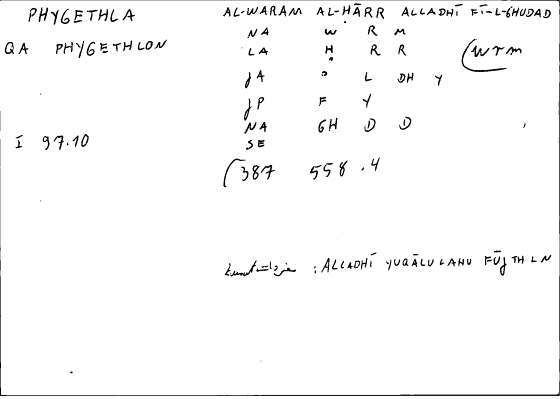 PHYGETHLA AL-WARAM AL-ḤĀRR ALLADHĪ FĪ-L-GHUDAD
NA W R M
QA PHYGETHLON LA Ḥ R R (wrm
JA ʾ L DH Y
JP F Y
NA GH D D
I 97.10 SE
(387 558.4
: ALLADHĪ YUQĀLU LAHU FŪJTHLN